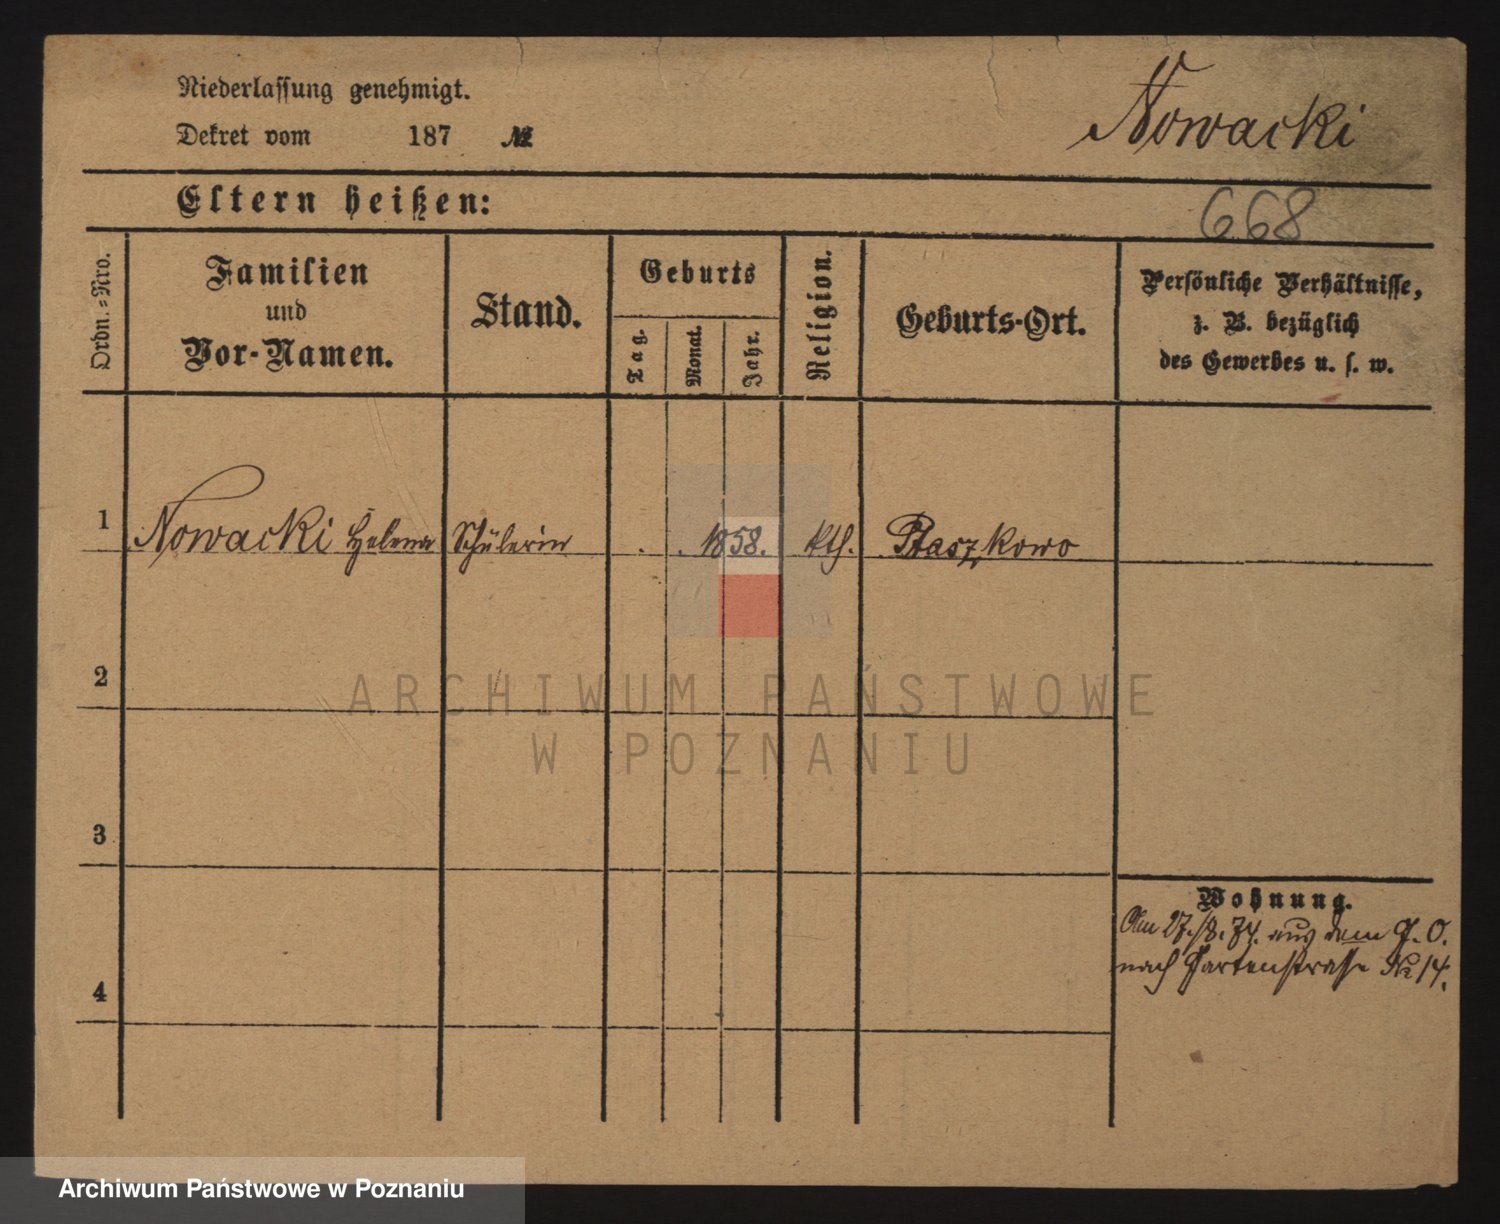 Niederlassung genehmigt.
Dekret vom 187 №
Nowacki
Eltern heißen:
668
Ordn.-Nro.
Familien
und
Vor-Namen.
Stand.
Geburts
Tag.
Monat.
Jahr.
Religion.
Geburts-Ort.
Persönliche Verhältnisse,
z. B. bezüglich
des Gewerbes u. s. w.
1 Nowacki Helena Schülerin . . 1858. kth. Ptaszkowo
2
ARCHIWUM PAŃSTWOWE
W POZNANIU
3
Wohnung.
Am 27./8. 74. aus dem G. O.
nach Gartenstrasse № 14.
4
Archiwum Państwowe w Poznaniu